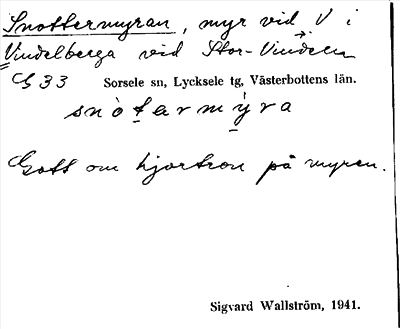 Snottermyran, myr vid V i
Vindelberga vid Stor-Vindeln
G 33 Sorsele sn, Lycksele tg, Västerbottens län.
snòtarmýra
Gott om hjortron på myren.
Sigvard Wallström, 1941.